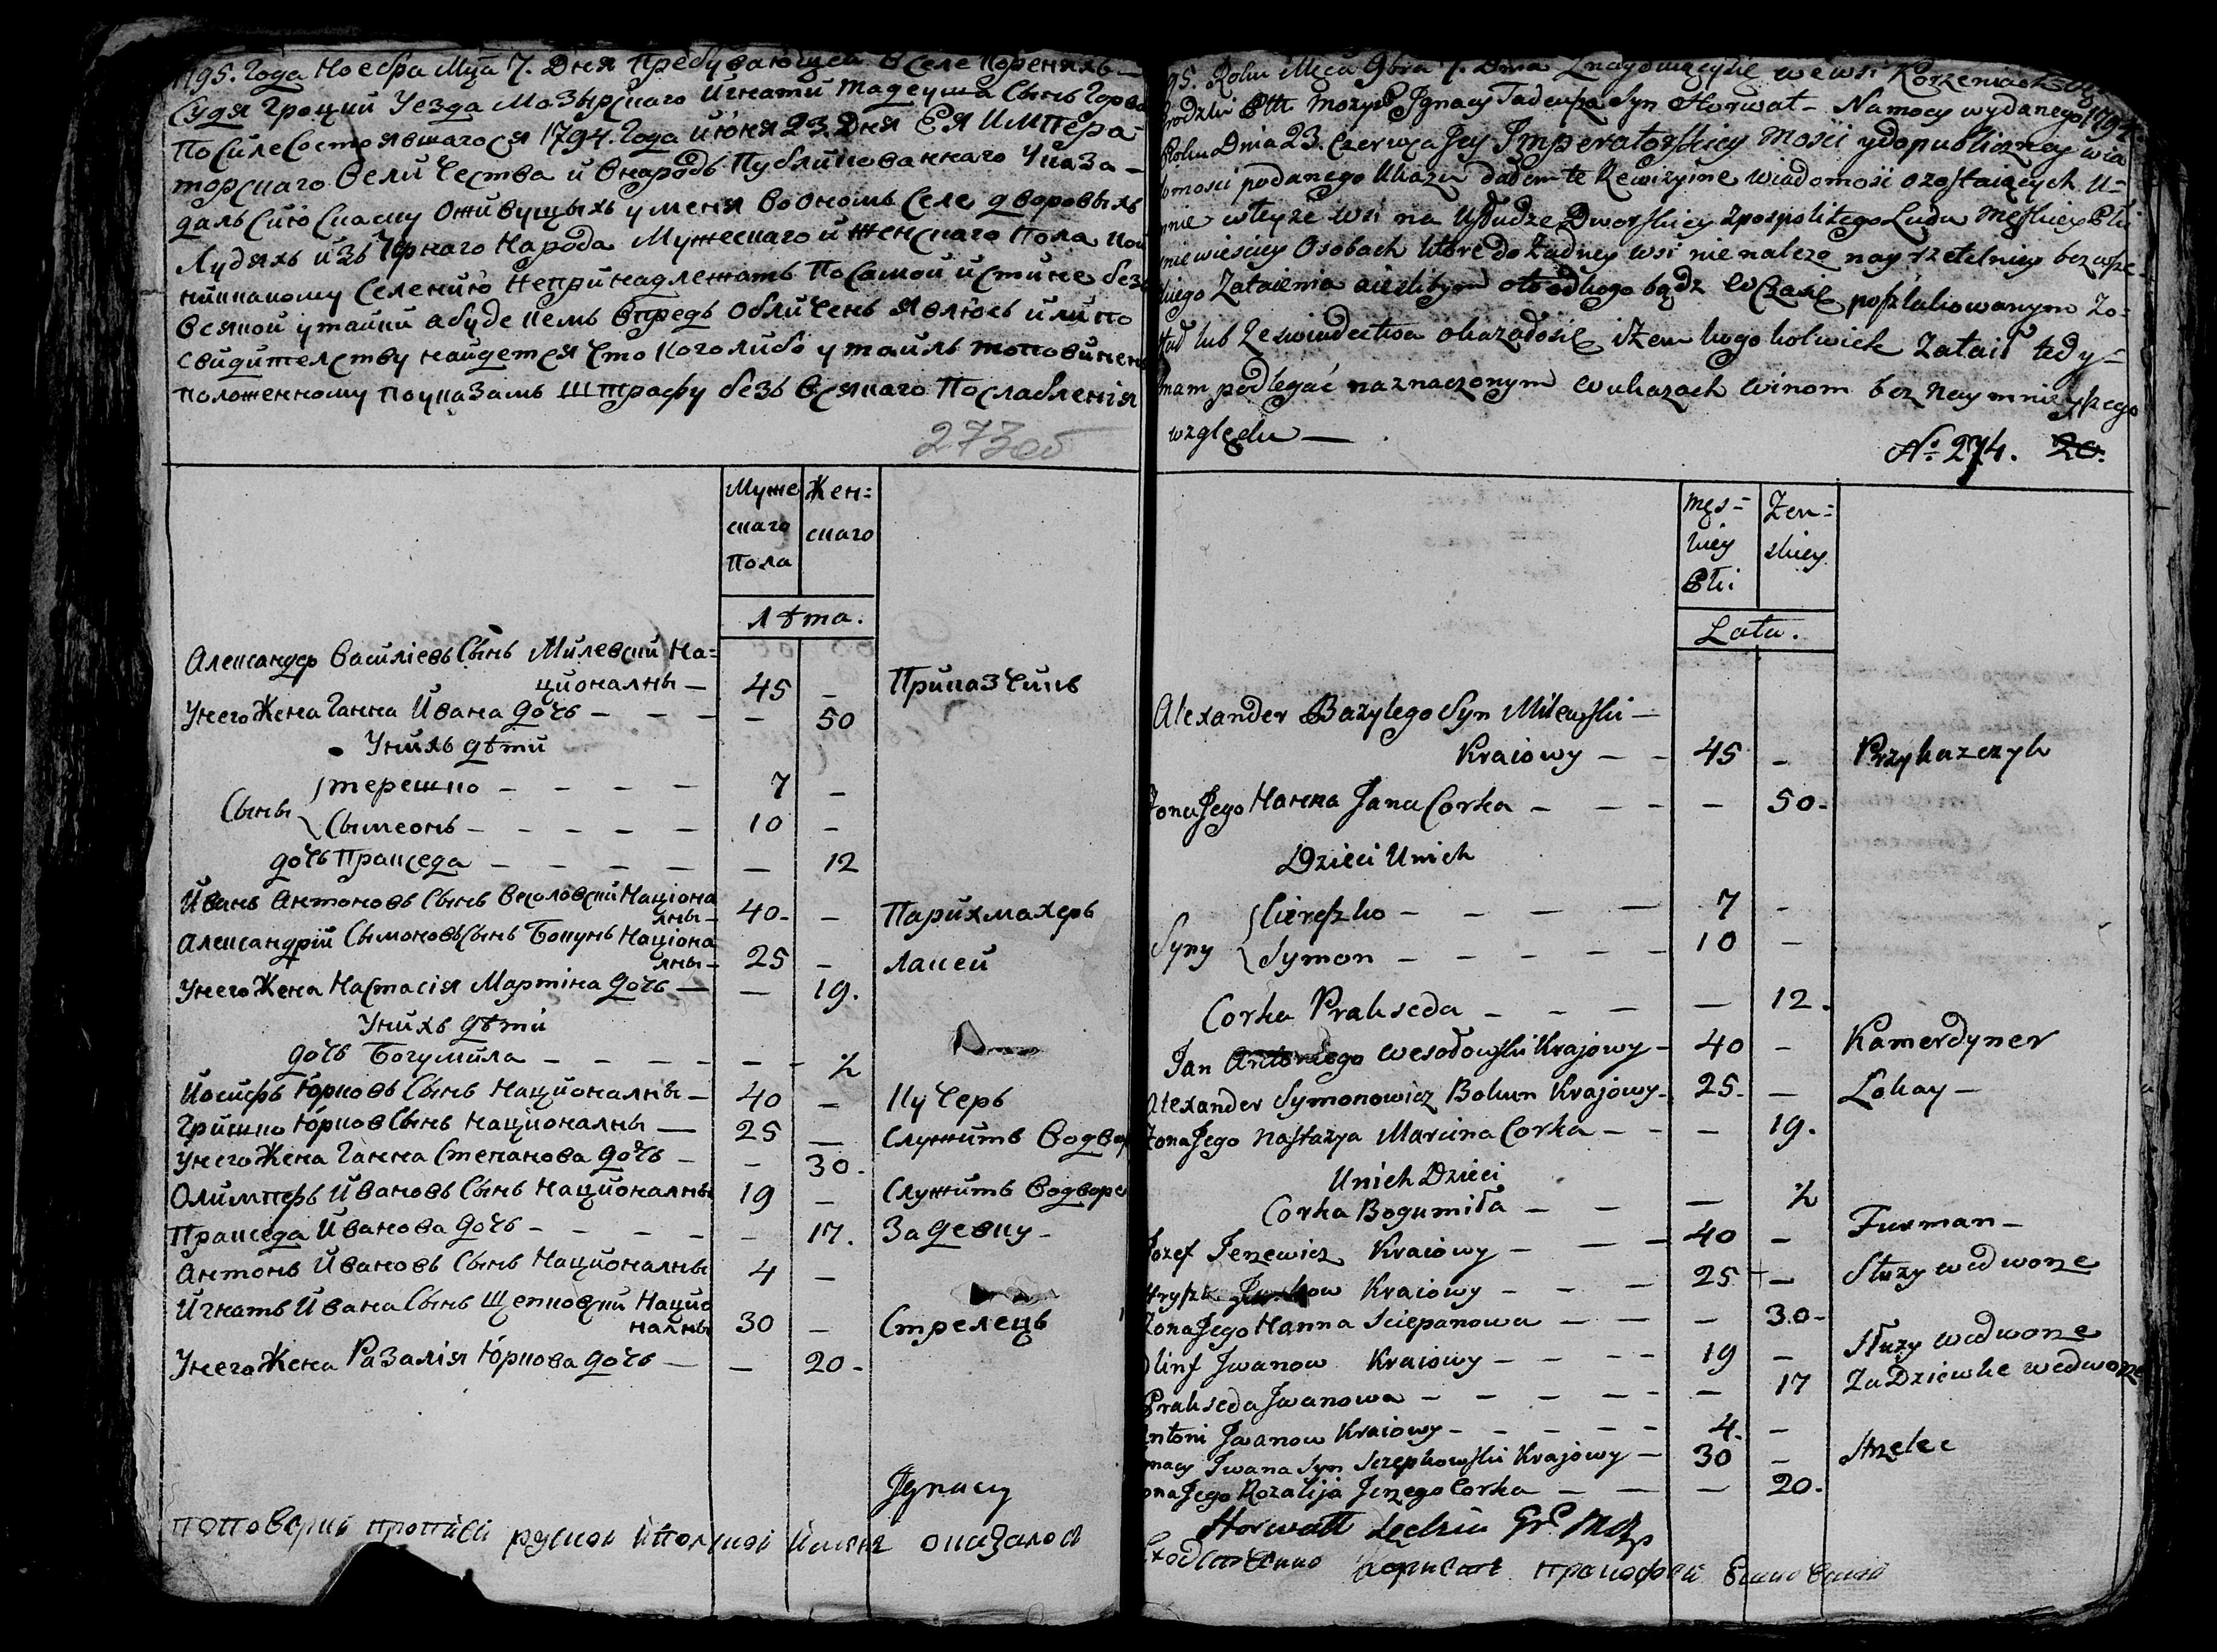 795. Года Ноебра Мца 7. Дня Пребувающея Вселе Кореняхъ
Судя Гроцкий Уезда Мозырскаго Игнатий Тадеуша Сынъ Горва
По Силе Состоявшагося 1794. Года июня 23 Дня ЕЯ ИМПЕРА-
торскаго Величества и Внародъ Публикованнаго Указа -
далъ Сию Скаску Оживущыхъ умена Воономъ Селе дворовыхъ
Людяхъ изъ Чернаго Народа Мужескаго и Женскаго Пола кои
никакому Селению Непринадлежатъ По Самой истине безъ
Всякой утайки абуде кемъ Впредь Обличенъ Явлюсь или по
Свидителству найдется Что Коголибо утаилъ топовиненъ
положенному поуказамъ Штрафу безъ Всякаго Послабления
273об
Муже Жен=
скаго скаго
Пола
лѣта.
Александр Василіевъ Сынъ Милевский На=
ционалны — 45 — Приказчикъ
Унего Жена Ганна Ивана дочъ — — — — 50
Унихъ дѣти
Сыны { терешко — — — — 7 —
Сымеонъ — — — — — 10 —
дочъ Пракседа — — — — — 12
Иванъ Антоновъ Сынъ Весоловский Націона
лны — 40 - — Парихмахеръ
Александрій Сымоновъ Сынъ Бокунъ Націона
лны — 25 — лакей
Унего Жена Настасія Мартіна дочъ — — 19.
Унихъ дѣти
дочъ Богумила — — — — — ½
Йосифъ Юрковъ Сынъ Националны — 40 — Кучеръ
Гришко Юрков Сынъ националны — 25 — Служитъ Водвор
Унего Жена Ганна Степанова дочъ — — 30 -
Олимперъ Ивановъ Сынъ Националны 19 — Служитъ Водворе
Пракседа Иванова дочъ — — — — — 17. За девку -
Антонъ Ивановъ Сынъ Националны 4 —
Игнатъ Ивана Сынъ Щепковский Нацио
налны 30 — Стрелецъ
Унего Жена Разалія Юркова дочъ — — 20 -
Ignacy
поповерки противъ руской ипольской имена оказалос
95. Roku Mca 9bra 7. Dnia Znayduiącysie wewsi Korzeniach
rodzki Ptt Mozyr Ignacy Tadeusza Syn Horwat - Namocy wydanego 1794
Roku Dnia 23. Czerwca Jey Imperatorskiey Mości ydopubliczney wia
omości podanego Ukazu daiem te Rewizyine wiadomości ozostaiących. U=
mnie wteyże wsi na Usłudze Dworskiey zpospolitego Ludu męskiey Płci
niewiescicy Osobach które do żadney wsi nie należą nayrzetelniey bezwsze
kiego Zataienia ieżelibym otoodkogo bądz wczasie poszlakowanym Zo=
stał lub Zeswiadectwa okazałosie iżem kogokolwiek Zataił tedy =
mam podlegać naznaczonym wukazach winom bez naymnieyszego
względu — .
No. 274. 20.
męs= Zen=
kiey skiey
Płci
Lata.
Alexander Bazylego Syn Milewski —
Kraiowy — — 45 — Przykazczyk
Zona Jego Hanna Jana Corka — — — — 50 -
Dzieci Unich
Syny { Cereszko — — — — 7 —
Symon — — — — — 10 —
Corka Prakseda — — — — 12.
Jan Antoniego Wesołowski Krajowy — 40 — Kamerdyner
Alexander Symonowicz Bokun Krajowy — 25 — — Lokay —
Zona Jego Nastazya Marcina Corka — — — 19.
Unich Dzieci
Corka Bogumiła — — — ½
Jozef Jerzewicz Kraiowy — — — 40 — Furman —
Hryszk Jurkow Kraiowy — — — 25 + — Słuzy wedworze
Zona Jego Hanna Sciepanowa — — — 30 -
Olinf Jwanow Kraiowy — — — — 19 — Słuzy wedworze
Prakseda Jwanowa — — — — — — 17 Za Dziewke wedworze
Antoni Jwanow Kraiowy — — — — — 4. —
nacy Jwana Syn Szczepkowski Krajowy — 30 — Strzelec
ona Jego Rozalija Jerzego Corka — — — 20.
Horwatt Sędzia Gr. Mozr
Сходственно